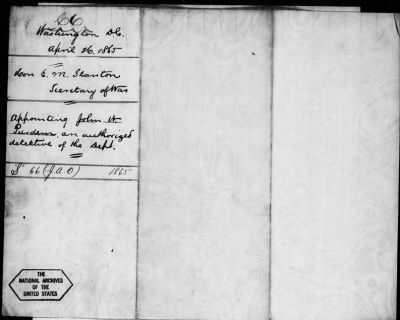 66
Washington D.C.
April 26, 1865
Hon E. M. Stanton
Secretary of War
Appointing John W
an authorized
detective of the Dept.
S 66 (J.A.O) 1865
THE
NATIONAL ARCHIVES
OF THE
UNITED STATES